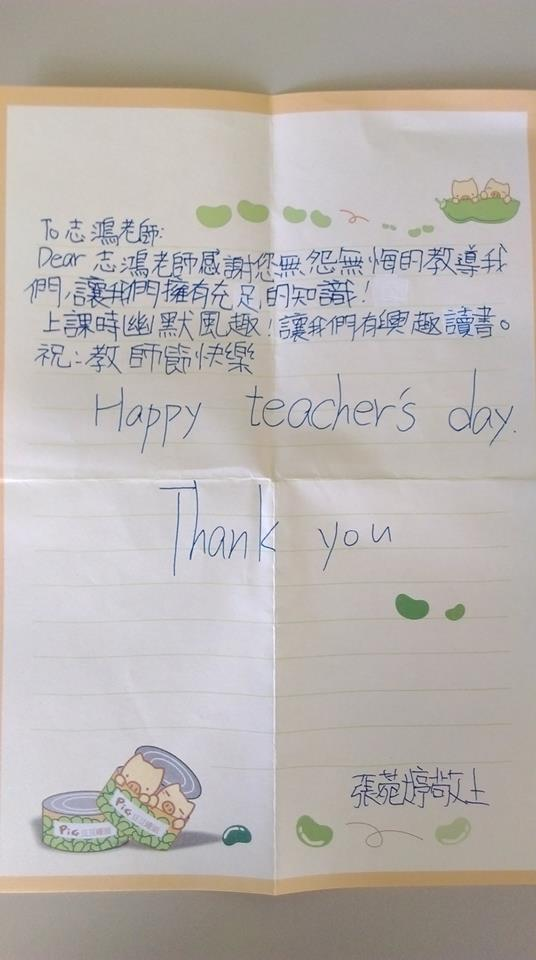 To志鴻老師:
Dear 志鴻老師感謝您無怨無悔的教導我
們,讓我們擁有充足的知識!
上課時幽默風趣!讓我們有興趣讀書。
祝:教師節快樂
Happy teacher's day.
Thank you
張苑婷敬上
PiG
PiG